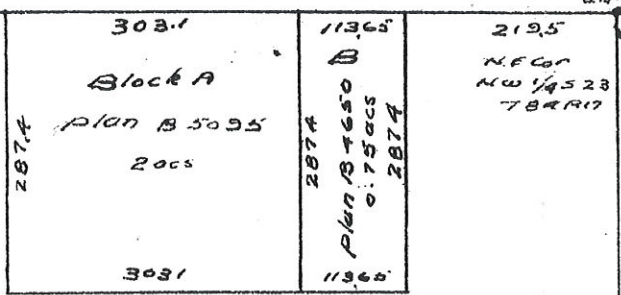 303.1
Block A
Plan B 5095
2 acs
287.4
303.1
113.65
B
287.4
Plan B 4650
0.75 acs
287.4
113.65
219.5
N.E Cor
NW 1/4 S 23